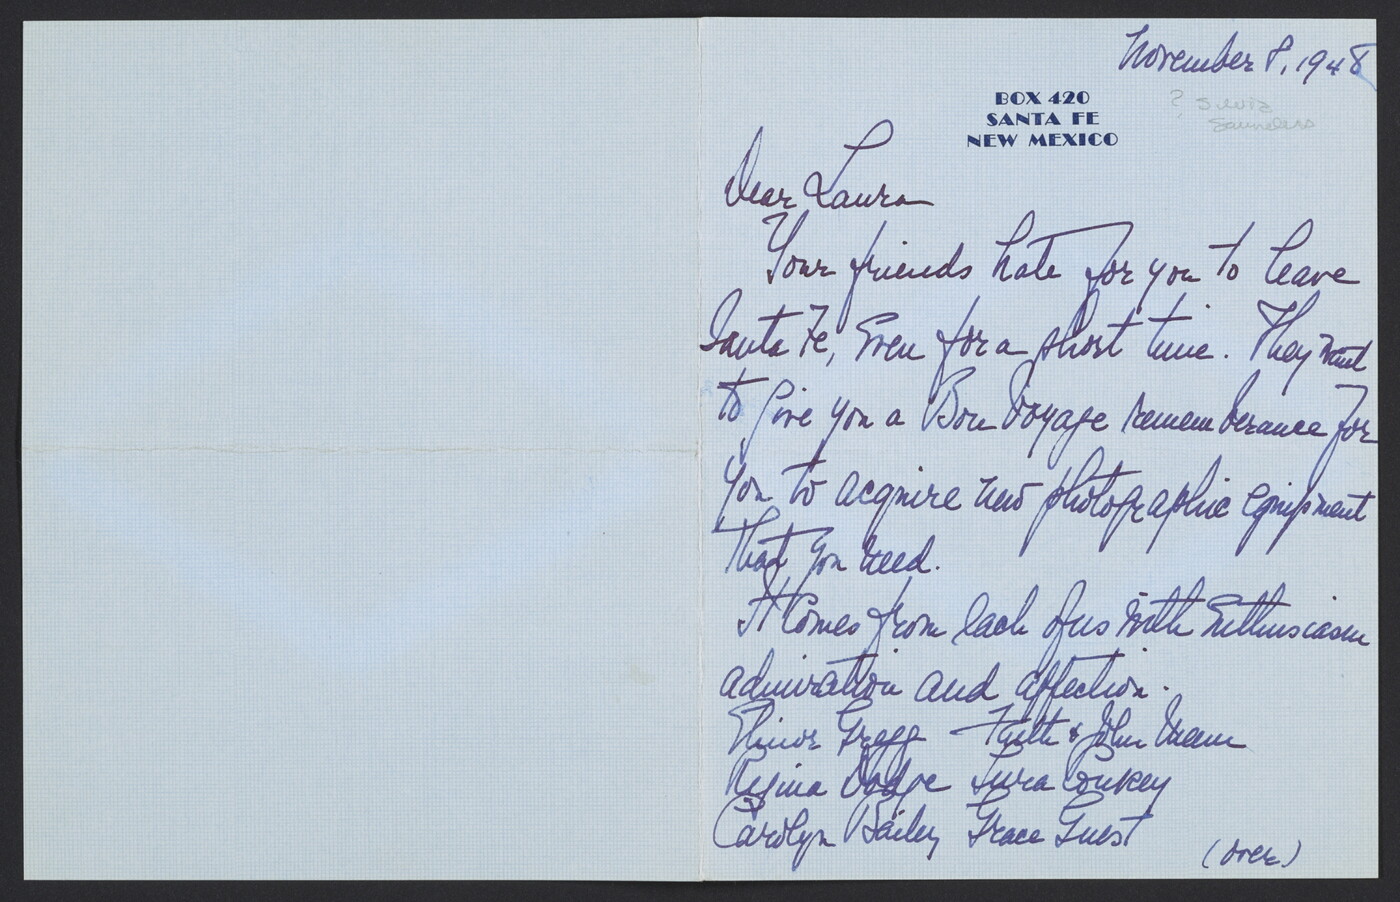 November 8, 1948
BOX 420
SANTA FE
NEW MEXICO
? Silvia
Saunders
Dear Laura
Your friends hate for you to leave
Santa Fe, Even for a short time. They want
to give you a Bon Voyage rememberance for
you to acquire new photographic equipment
that you need.
It comes from each of us with Enthusiasm
admiration and affection.
Elinor Gregg - Faith & John Meem
Regina Dodge Lura Conkey
Carolyn Bailey Grace Guest
(over)